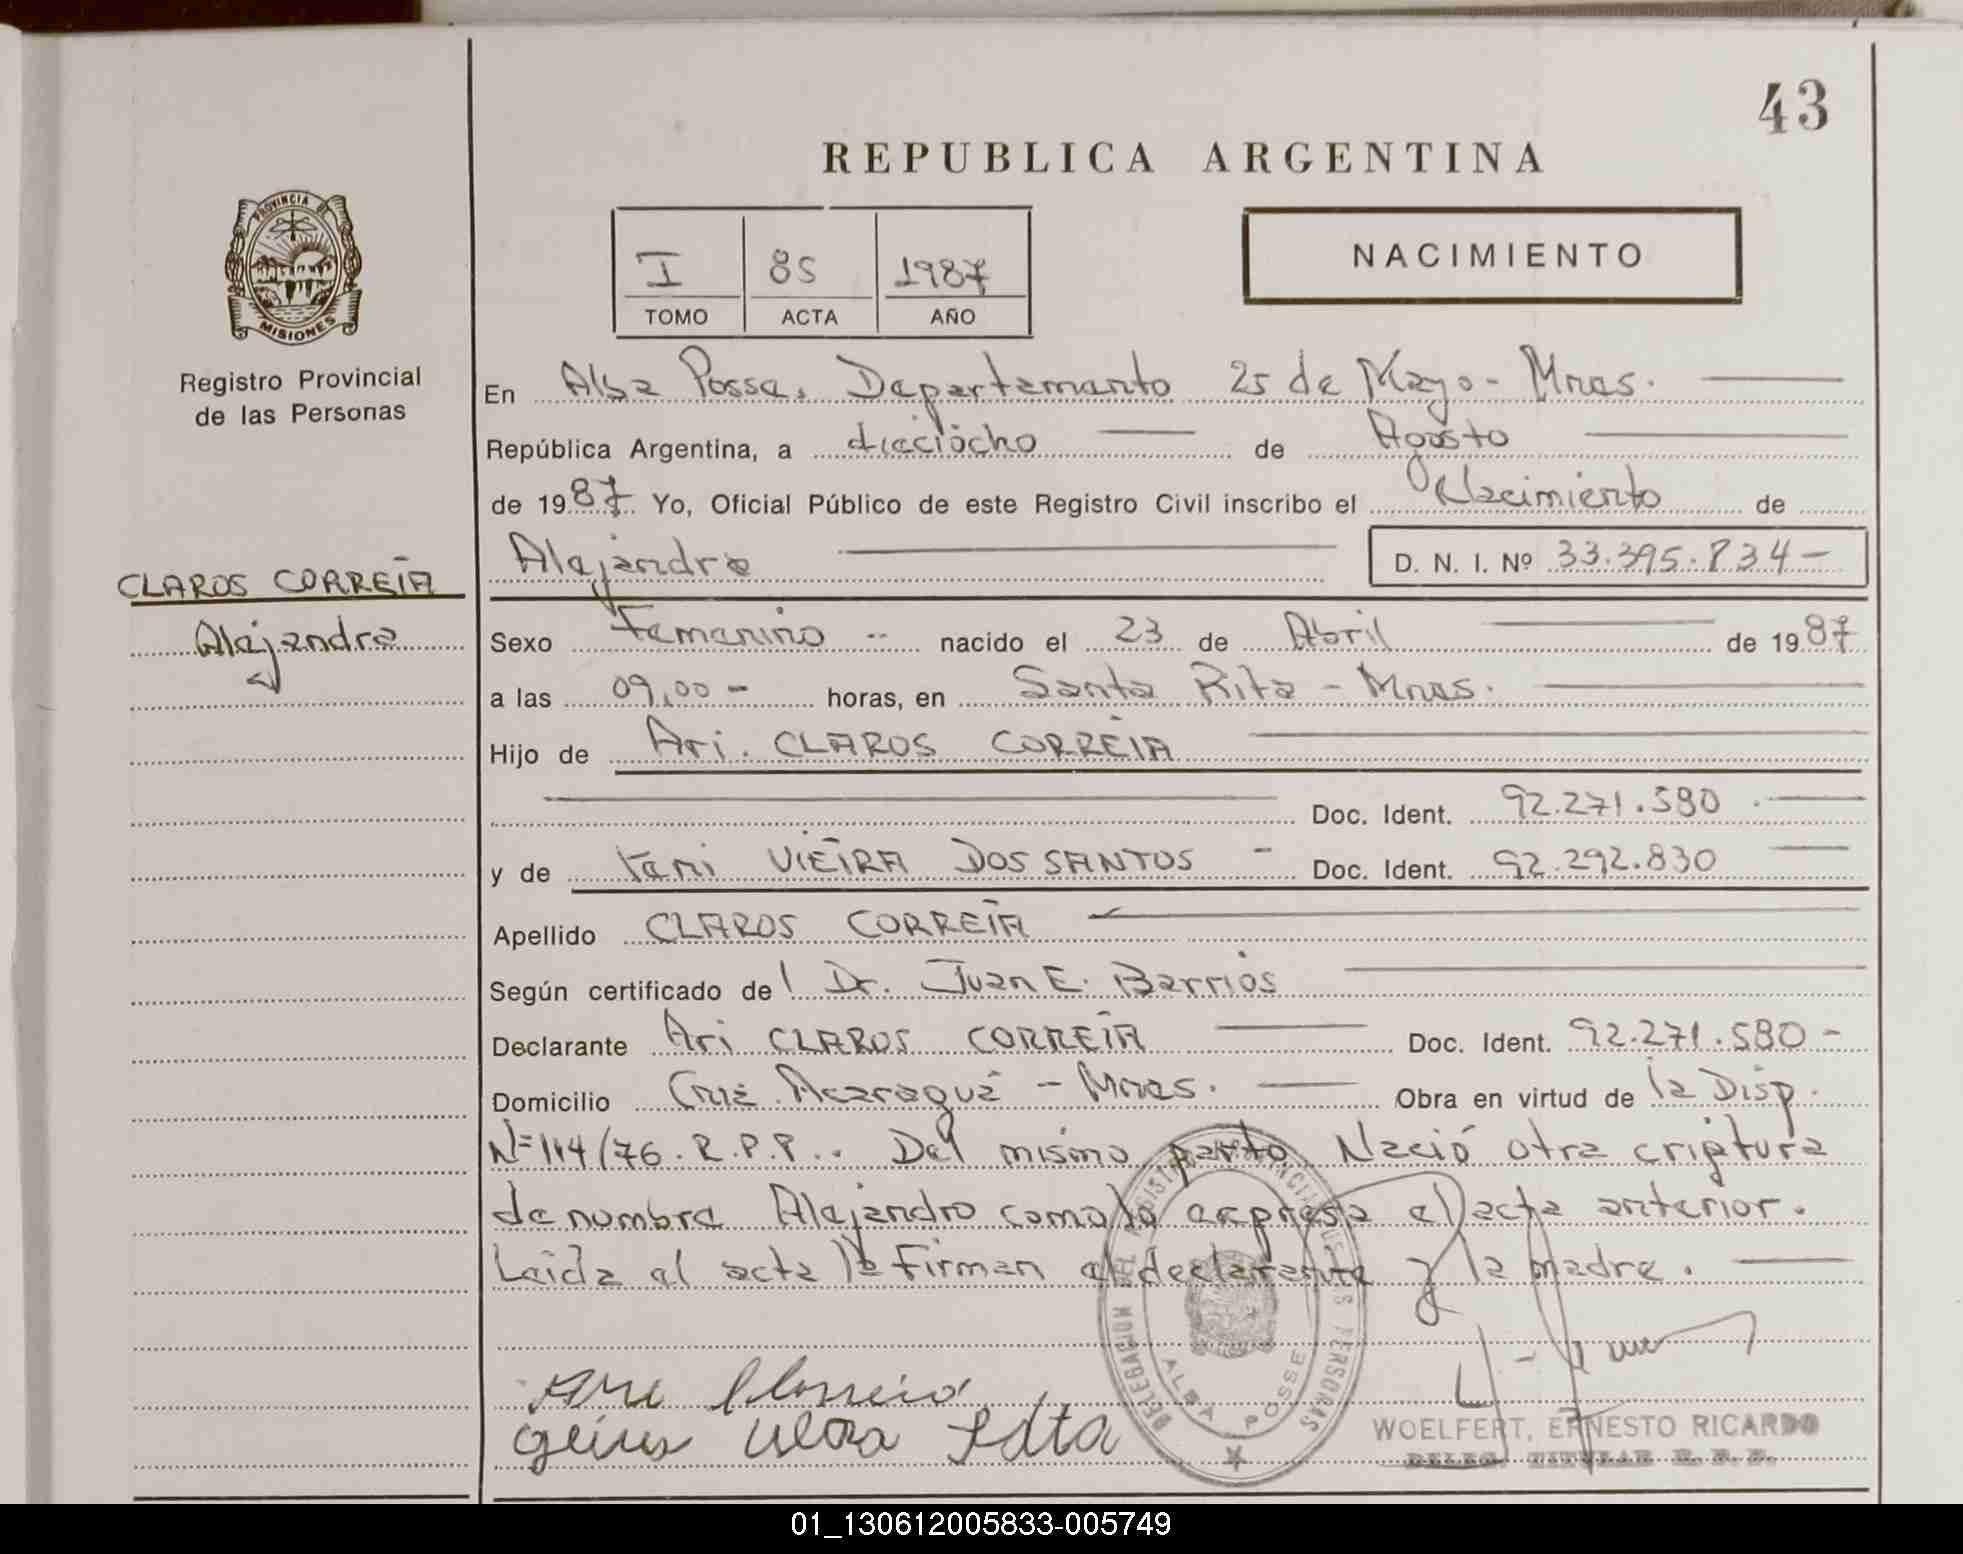 43
REPUBLICA ARGENTINA
I 85 1987
TOMO ACTA AÑO
NACIMIENTO
PROVINCIA DE
MISIONES
Registro Provincial
de las Personas
CLAROS CORREIA
Alejandra
En Alba Posse, Departamento 25 de Mayo - Mnes.
República Argentina, a dieciocho de Agosto
de 1987 Yo, Oficial Público de este Registro Civil inscribo el Nacimiento de
Alejandra D. N. I. Nº 33.395.834-
Sexo Femenino -- nacido el 23 de Abril de 1987
a las 09,00 - horas, en Santa Rita - Mnes.
Hijo de Ari CLAROS CORREIA
Doc. Ident. 92.271.580
y de VIEIRA DOS SANTOS - Doc. Ident. 92.292.830
Apellido CLAROS CORREIA
Según certificado del Dr. Juan E. Barrios
Declarante Ari CLAROS CORREIA Doc. Ident. 92.271.580 -
Domicilio Cruz Acaragua - Mnes. Obra en virtud de la Disp.
Nº 114/76. R.P.P.. Del mismo parto Nació otra criptura
de nombre Alejandro como lo expresa el acta anterior.
Leida el acta la Firman el declarante y la madre.
DELEGACION DEL REGISTRO PROVINCIAL DE LAS PERSONAS
ALBA POSSE
WOELFERT, ERNESTO RICARDO
DELEG. TITULAR R. P. P.
01_130612005833-005749